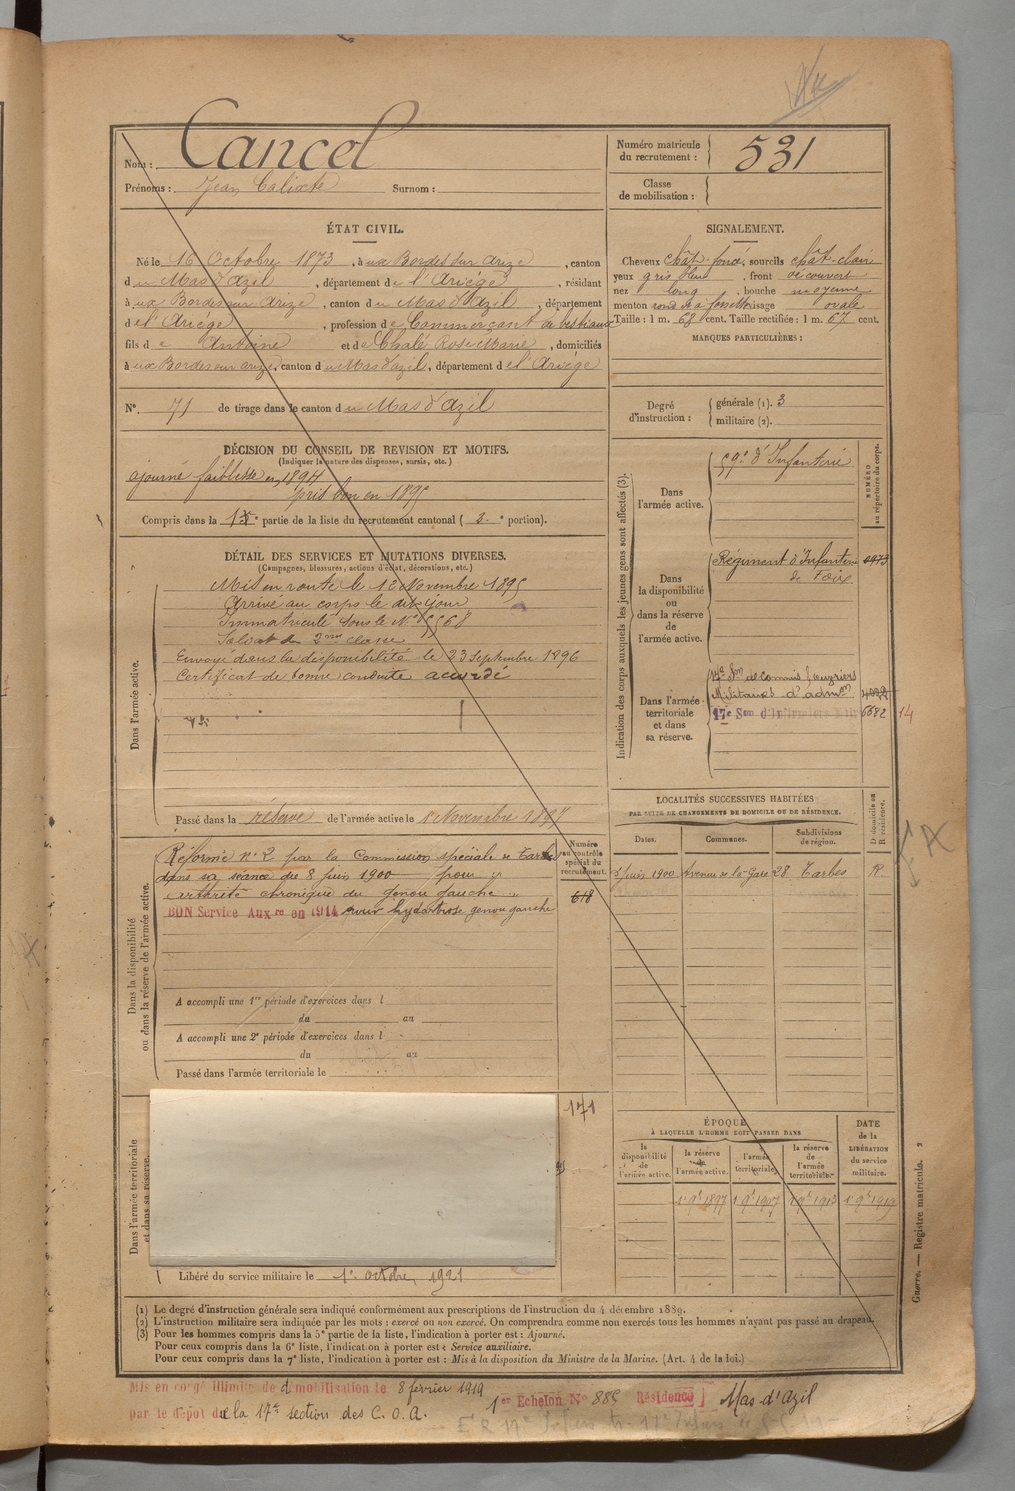 Nom : Cancel
Prénoms : Jean Calixte Surnom :
Numéro matricule du recrutement : 531
Classe de mobilisation :
ÉTAT CIVIL.
Né le 16 Octobre 1873, à ux Bordes sur Arize, canton
du Mas d'Azil, département de l'Ariège, résidant
à ux Bordes sur Arize, canton du Mas d'Azil, département
de l'Ariège, profession de Commerçant de bestiaux
fils de Antoine et de Chalé Rose Marie, domiciliés
à ux Bordes sur Arize, canton du Mas d'Azil, département de l'Ariège
N° 71 de tirage dans le canton du Mas d'Azil
SIGNALEMENT.
Cheveux chât. foncé, sourcils chât. clair
yeux gris bleu, front découvert
nez long, bouche moyenne
menton rond à fossette visage ovale
Taille : 1 m. 68 cent. Taille rectifiée : 1 m. 67 cent.
MARQUES PARTICULIÈRES :
Degré d'instruction : générale (1). 3
militaire (2).
DÉCISION DU CONSEIL DE REVISION ET MOTIFS.
(Indiquer la nature des dispenses, sursis, etc.)
ajourné faiblesse en 1894
pris bon en 1895
Compris dans la partie de la liste du recrutement cantonal ( 2e portion).
DÉTAIL DES SERVICES ET MUTATIONS DIVERSES.
(Campagnes, blessures, actions d'éclat, décorations, etc.)
Dans l'armée active.
Mis en route le 12 Novembre 1895
Arrivé au corps le dit jour
Immatriculé sous le N°
Soldat de 2me classe
Envoyé dans la disponibilité le 23 Septembre 1896
Certificat de bonne conduite accordé
Passé dans la réserve de l'armée active le 1er Novembre 1897
Indication des corps auxquels les jeunes gens sont affectés (3).
NUMÉRO au répertoire du corps.
Dans l'armée active.
59e d'Infanterie
Dans la disponibilité ou dans la réserve de l'armée active.
Régiment d'Infanterie
de Foix
Dans l'armée territoriale et dans sa réserve.
17e Son de Commis & ouvriers
Militaires d'admon
17e Son d'Infirmiers Mil
6682 14
Dans la disponibilité ou dans la réserve de l'armée active.
Numéro au contrôle spécial du recrutement.
Réformé n° 2 par la Commission spéciale de Tarbes
dans sa séance du 8 juin 1900 pour "
arthrite chronique du genou gauche "
618
BON Service Auxre en 1914 pour hydarthrose genou gauche
A accompli une 1re période d'exercices dans l
du au
A accompli une 2e période d'exercices dans l
du au
Passé dans l'armée territoriale le
LOCALITÉS SUCCESSIVES HABITÉES
PAR SUITE DE CHANGEMENTS DE DOMICILE OU DE RÉSIDENCE.
Dates. Communes. Subdivisions de région. D domicile ou R résidence.
3 juin 1900 Avenue de la Gare 28 Tarbes R
Dans l'armée territoriale et dans sa réserve.
171
Libéré du service militaire le 1er octobre 1921
ÉPOQUE
À LAQUELLE L'HOMME DOIT PASSER DANS
la disponibilité de l'armée active.
la réserve de l'armée active.
l'armée territoriale.
la réserve de l'armée territoriale.
DATE de la LIBÉRATION du service militaire.
1er 9bre 1897 1er 9bre 1907 1er 9bre 1913 1er 9bre 1919
Guerre. — Registre matricule. 2
(1) Le degré d'instruction générale sera indiqué conformément aux prescriptions de l'instruction du 4 décembre 1889.
(2) L'instruction militaire sera indiquée par les mots : exercé ou non exercé. On comprendra comme non exercés tous les hommes n'ayant pas passé au drapeau.
(3) Pour les hommes compris dans la 5e partie de la liste, l'indication à porter est : Ajourné.
Pour ceux compris dans la 6e liste, l'indication à porter est : Service auxiliaire.
Pour ceux compris dans la 7e liste, l'indication à porter est : Mis à la disposition du Ministre de la Marine. (Art. 4 de la loi.)
Mis en congé illimité de démobilisation le 8 février 1919
par le dépôt de la 17e section des C. O. A.
1er Echelon N° 885 Résidence Mas d'Azil